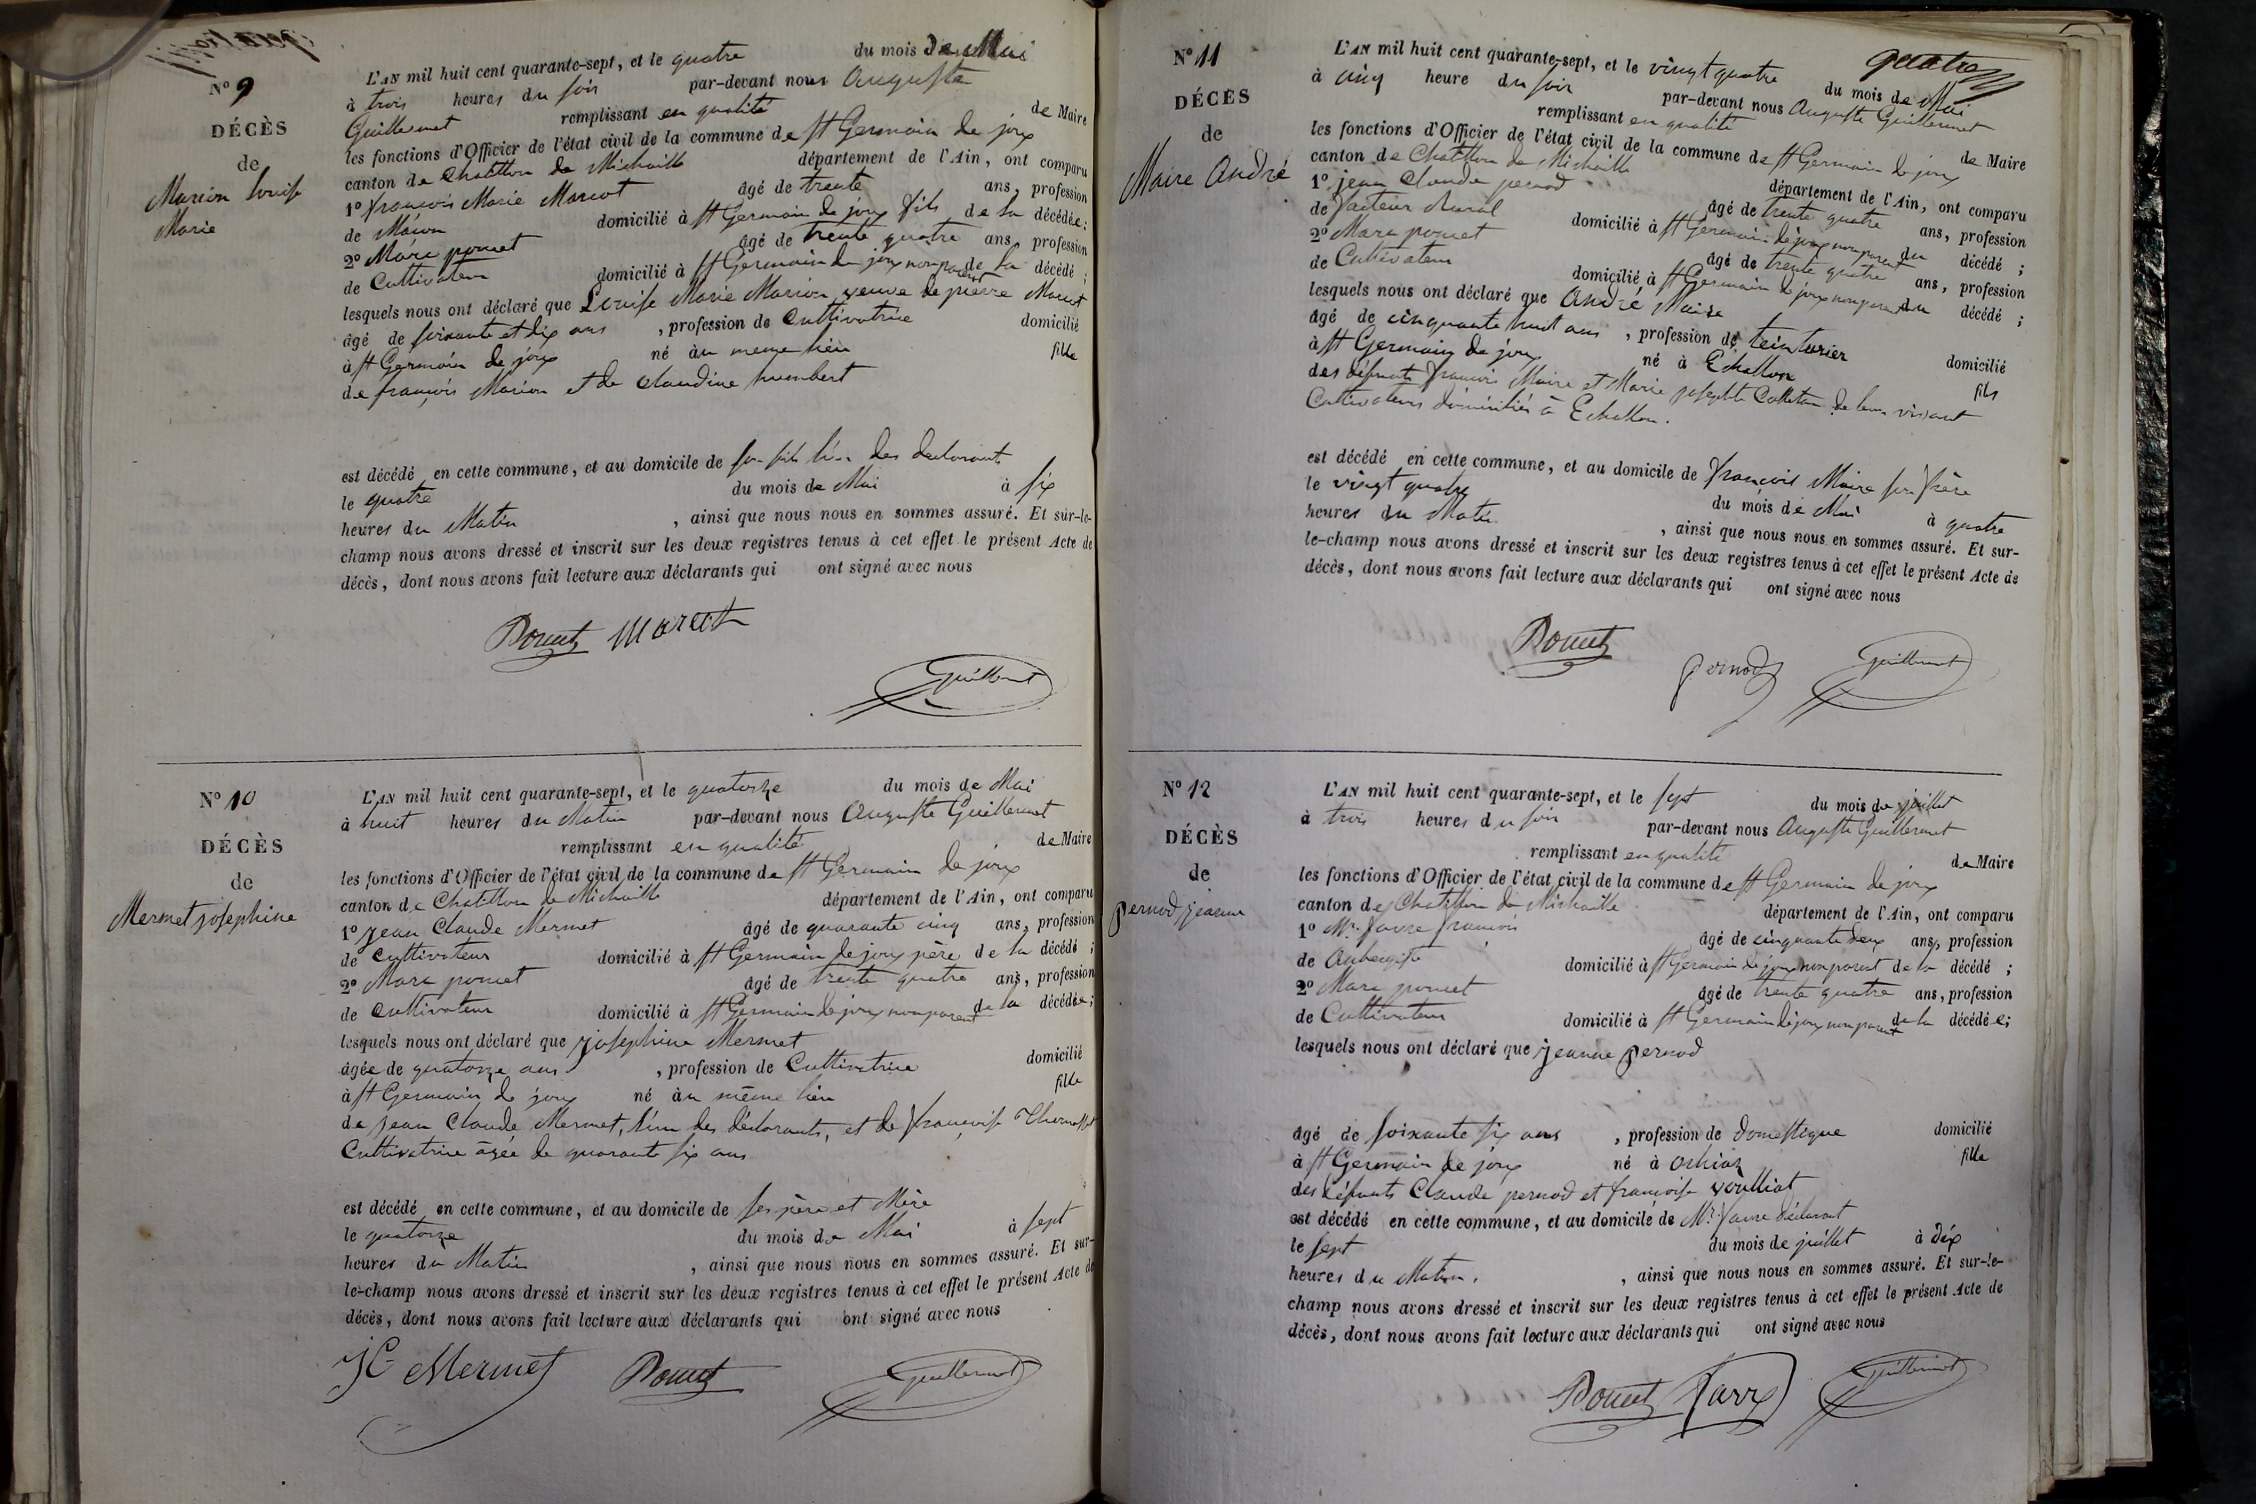 N° 9
DÉCÈS
de
Marion Louise
Marie
L'AN mil huit cent quarante-sept, et le quatre du mois de Mai
à trois heures du soir par-devant nous Auguste
Guillermet remplissant en qualité de Maire
les fonctions d'Officier de l'état civil de la commune de St Germain de joux
canton de Chatillon de Michaille département de l'Ain, ont comparu
1° françois Marie Marcot âgé de trente ans, profession
de Maçon domicilié à St Germain de joux fils de la décédée;
2° Marc poncet âgé de trente quatre ans, profession
de Cultivateur domicilié à St Germain de joux non parent de la décédé ;
lesquels nous ont déclaré que Louise Marie Marion veuve de pierre Marcot
âgé de soixante et dix ans , profession de Cultivatrice domicilié
à St Germain de joux né au meme lieu fille
de françois Marion et de claudine humbert
est décédé en cette commune, et au domicile de son fils l'un des declarants
le quatre du mois de Mai à six
heures du Matin , ainsi que nous nous en sommes assuré. Et sur-le-
champ nous avons dressé et inscrit sur les deux registres tenus à cet effet le présent Acte de
décès, dont nous avons fait lecture aux déclarants qui ont signé avec nous
Poncet Marcot
Guillermet
N° 10
DÉCÈS
de
Mermet josephine
L'AN mil huit cent quarante-sept, et le quatorze du mois de Mai
à huit heures du Matin par-devant nous Auguste Guillermet
remplissant en qualité de Maire
les fonctions d'Officier de l'état civil de la commune de St Germain de joux
canton de Chatillon de Michaille département de l'Ain, ont comparu
1° jean Claude Mermet âgé de quarante cinq ans, profession
de cultivateur domicilié à St Germain de joux père de la décédé ;
2° Marc poncet âgé de trente quatre ans, profession
de Cultivateur domicilié à St Germain de joux non parent de la décédée;
lesquels nous ont déclaré que josephine Mermet
âgée de quatorze ans , profession de Cultivatrice domicilié
à St Germain de joux né au même lieu fille
de jean Claude Mermet, l'un des déclarants, et de françoise
Cultivatrice âgée de quarante six ans
est décédé en cette commune, et au domicile de ses père et Mère
le quatorze du mois de Mai à sept
heures du Matin , ainsi que nous nous en sommes assuré. Et sur-
le-champ nous avons dressé et inscrit sur les deux registres tenus à cet effet le présent Acte de
décès, dont nous avons fait lecture aux déclarants qui ont signé avec nous
JC Mermet Poncet Guillermet
quatre
N° 11
DÉCÈS
de
Maire André
L'AN mil huit cent quarante-sept, et le vingt quatre du mois de Mai
à cinq heure du soir par-devant nous Auguste Guillermet
remplissant en qualité de Maire
les fonctions d'Officier de l'état civil de la commune de St Germain de joux
canton de Chatillon de Michaille département de l'Ain, ont comparu
1° jean Claude pernod âgé de trente quatre ans, profession
de facteur Rural domicilié à St Germain de joux non parent du décédé ;
2° Marc poncet âgé de trente quatre ans, profession
de Cultivateur domicilié à St Germain de joux non parent du décédé ;
lesquels nous ont déclaré que André Maire
âgé de cinquante huit ans , profession de teinturier domicilié
à St Germain de joux né à Echallon fils
des défunts françois Maire et Marie josephte de leur vivant
Cultivateurs domiciliés à Echallon.
est décédé en cette commune, et au domicile de françois Maire son frère
le vingt quatre du mois de Mai à quatre
heures du Matin , ainsi que nous nous en sommes assuré. Et sur-
le-champ nous avons dressé et inscrit sur les deux registres tenus à cet effet le présent Acte de
décès, dont nous avons fait lecture aux déclarants qui ont signé avec nous
Poncet
pernod Guillermet
N° 12
DÉCÈS
de
pernod jeanne
L'AN mil huit cent quarante-sept, et le sept du mois de juillet
à trois heures du soir par-devant nous Auguste Guillermet
remplissant en qualité de Maire
les fonctions d'Officier de l'état civil de la commune de St Germain de joux
canton de Chatillon de Michaille département de l'Ain, ont comparu
1° Mr. favre françois âgé de cinquante deux ans, profession
de Aubergiste domicilié à St Germain de joux non parent de la décédé ;
2° Marc poncet âgé de trente quatre ans, profession
de Cultivateur domicilié à St Germain de joux non parent de la décédée;
lesquels nous ont déclaré que jeanne pernod
âgé de soixante six ans , profession de domestique domicilié
à St Germain de joux né à ochiaz fille
des défunts Claude pernod et françoise voulliat
est décédé en cette commune, et au domicile de Mr. favre déclarant
le sept du mois de juillet à dix
heures du Matin. , ainsi que nous nous en sommes assuré. Et sur-le-
champ nous avons dressé et inscrit sur les deux registres tenus à cet effet le présent Acte de
décès, dont nous avons fait lecture aux déclarants qui ont signé avec nous
Poncet favre Guillermet